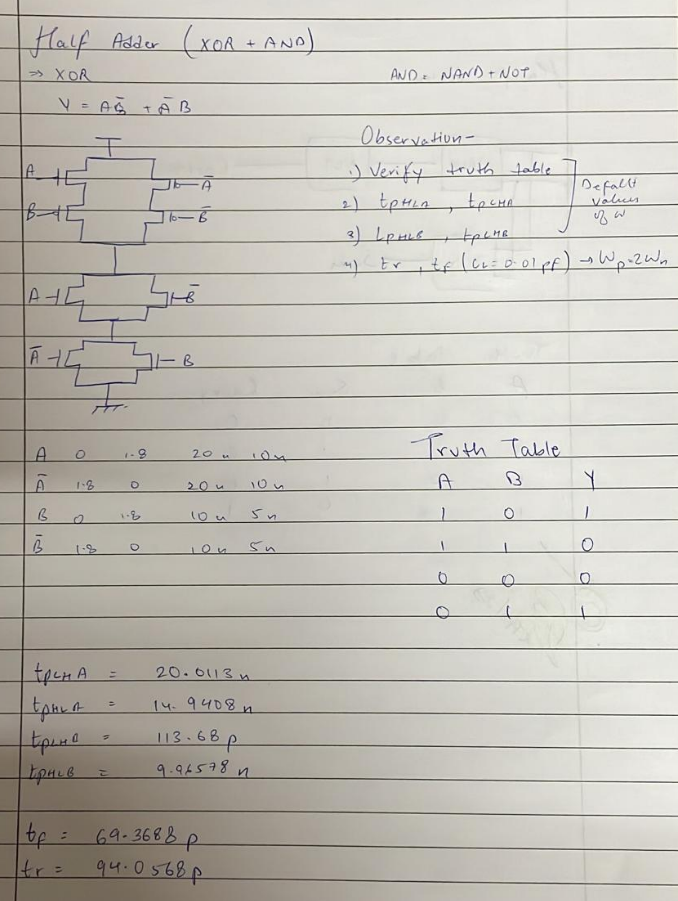 Half Adder (XOR + AND)
⇒ XOR
AND = NAND + NOT
Y = AB̄ + ĀB
Observation-
1) Verify truth table
2) tPHLA, tPLHA
3) tPHLB, tPLHB
Defalt values of w
4) tr, tf (CL = 0.01pf) → Wp = 2Wn
A
Ā
B
B̄
A
B̄
Ā
B
A 0 1.8 20n 10n
Ā 1.8 0 20n 10n
B 0 1.8 10n 5n
B̄ 1.8 0 10n 5n
Truth Table
A B Y
1 0 1
1 1 0
0 0 0
0 1 1
tPLHA = 20.0113n
tPHLA = 14.9408n
tPLHB = 113.68p
tPHLB = 9.96578n
tf = 69.3688p
tr = 94.0568p